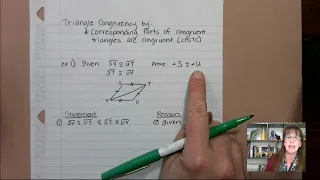 Triangle Congruency by:
* Corresponding parts of congruent
triangles are congruent (CPCTC)
ex 1) given: SV ≅ UT Prove: ∠S ≅ ∠U
ST ≅ UV
S T
V U
Statement Reason
① SV ≅ UT & ST ≅ UV ① given